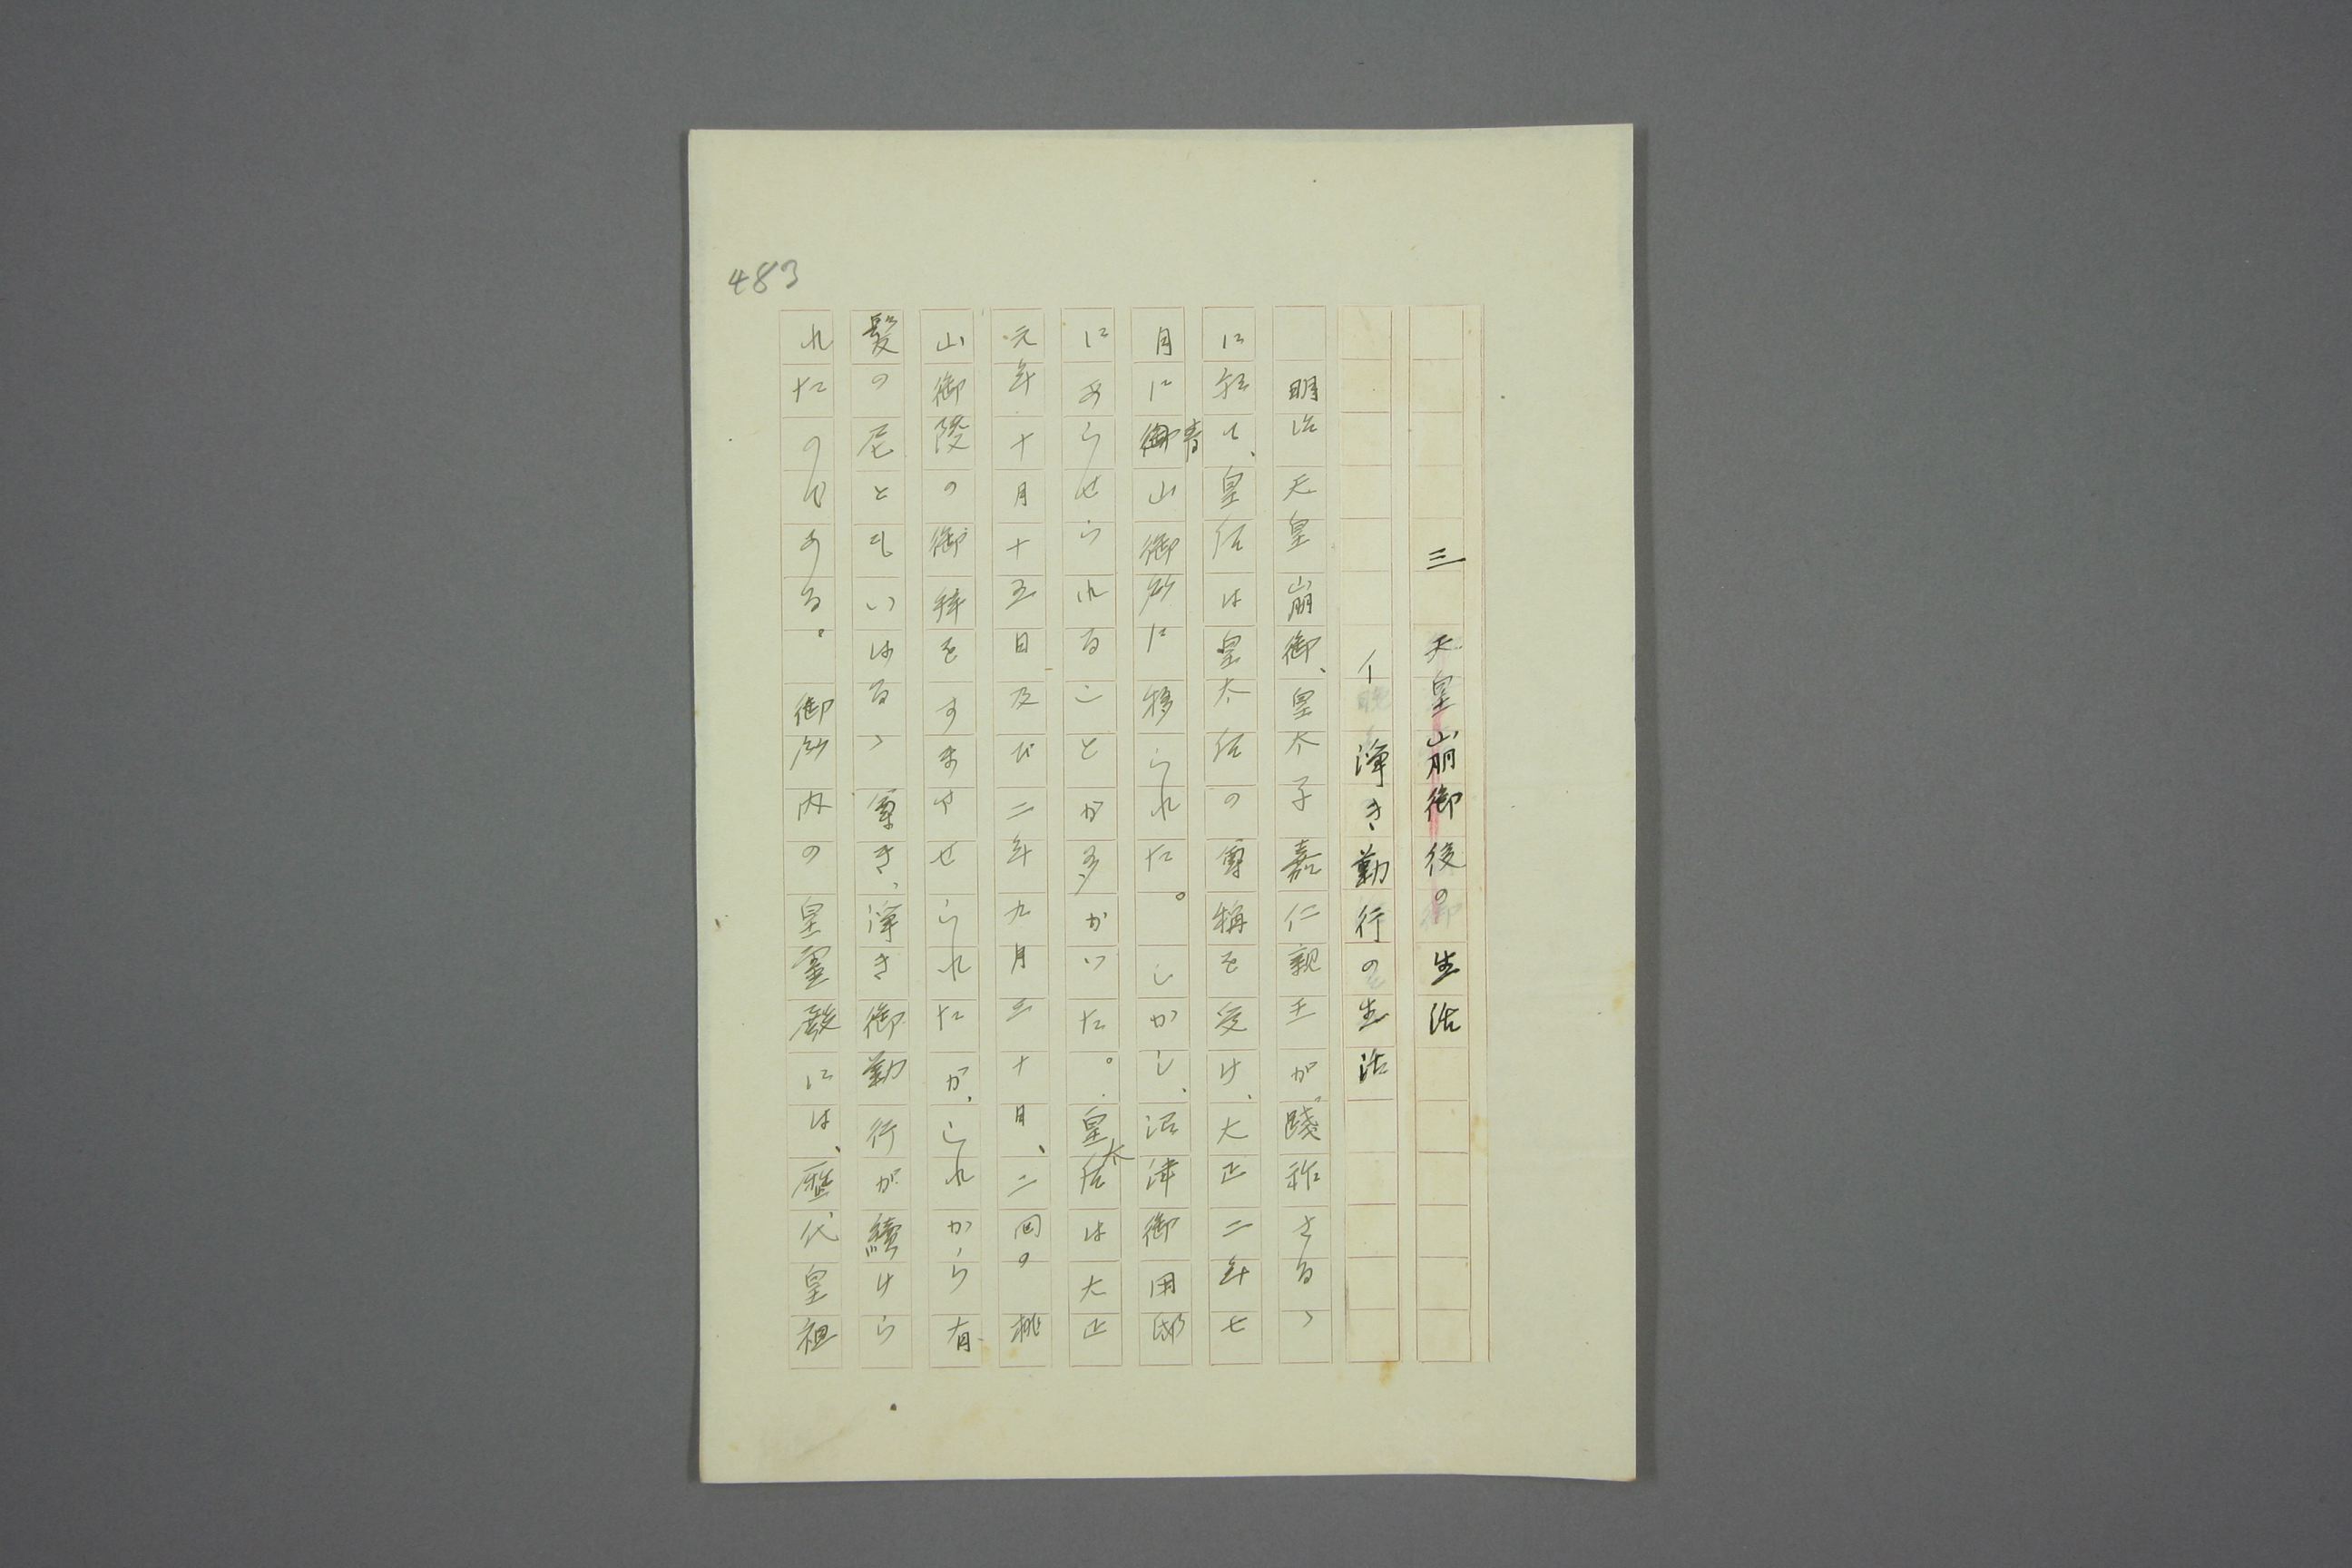 483
三　天皇崩御後の生活
イ　浄き勤行の生活
明治天皇崩御、皇太子嘉仁親王が践祚さるゝ
に至て、皇后は皇太后の尊称を受け、大正二年七
月に青山御所に移られた。しかし、沼津御用邸
にあらせられることが多かいた。皇太后は大正
元年十月十五日及び二年九月三十日、二回の桃
山御陵の御拝をすませられたが、これから有
髪の尼ともいはるゝ尊き、浄き御勤行が續けら
れたのである。御所内の皇霊殿には、歴代皇祖